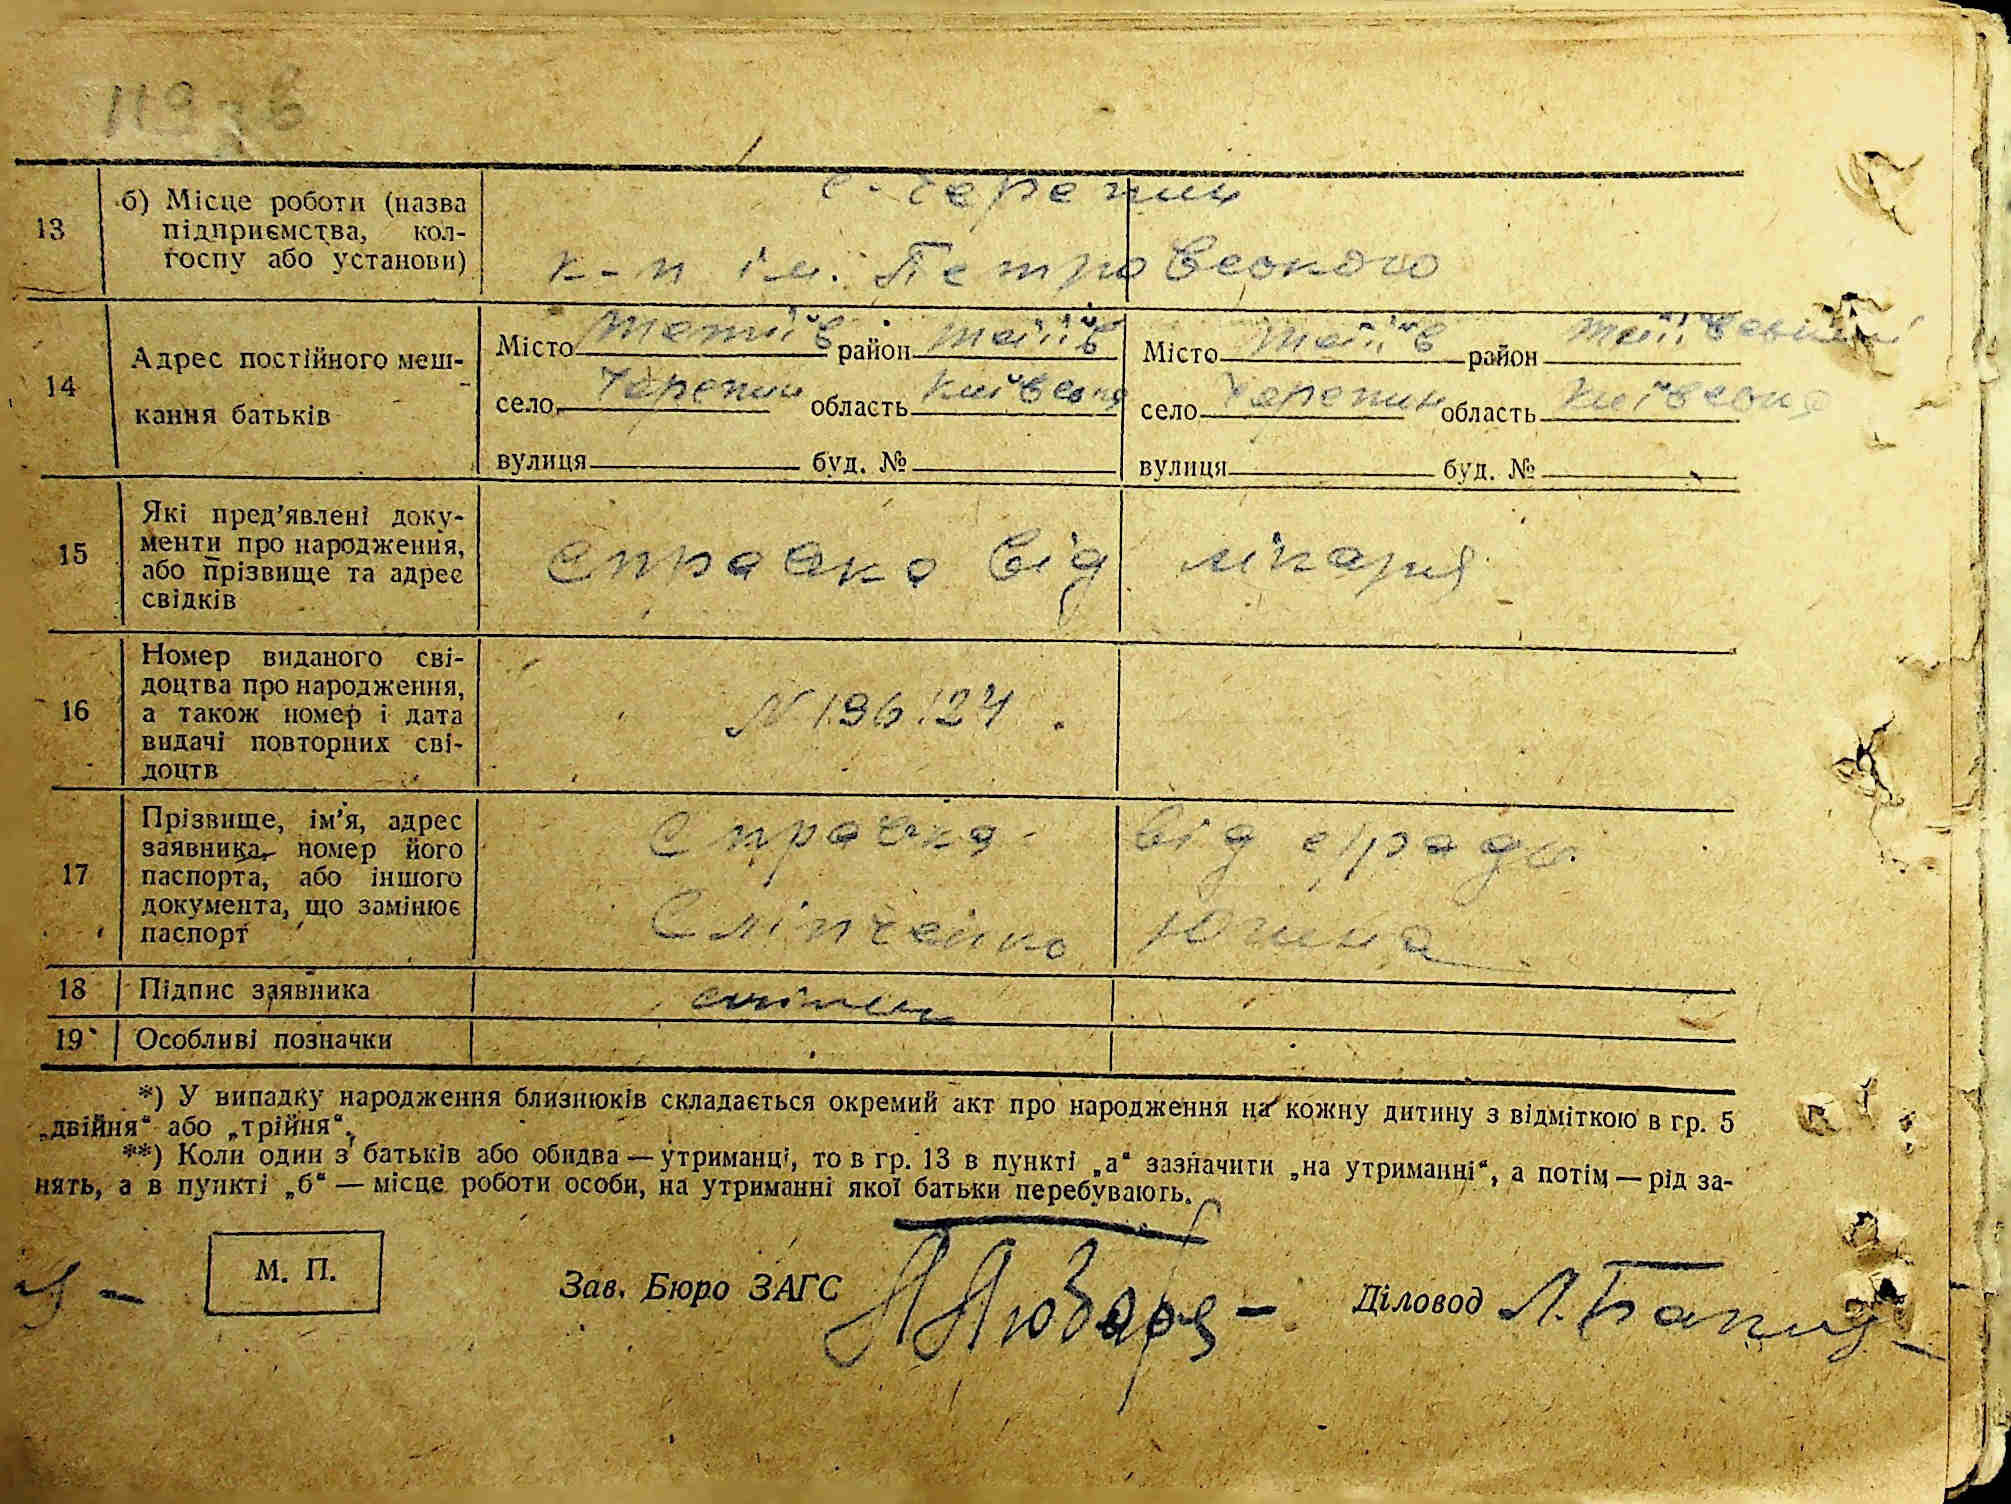 119 зв
13 б) Місце роботи (назва підприємства, кол-госпу або установи)
с. Черепин
к-п ім. Петровського
14 Адрес постійного меш-
кання батьків
Місто Тетіїв район Тетіїв Місто Тетіїв район Тетіївський
село Черепин область Київська село Черепин область Київська
вулиця буд. № вулиця буд. №
15 Які пред'явлені доку-
менти про народження,
або прізвище та адрес
свідків
Справка від лікаря
16 Номер виданого сві-
доцтва про народження,
а також номер і дата
видачі повторних сві-
доцтв
N 196124
17 Прізвище, ім'я, адрес
заявника, номер його
паспорта, або іншого
документа, що замінює
паспорт
Справка від с/ради
Сліпченко Югина
18 Підпис заявника
19 Особливі позначки
*) У випадку народження близнюків складається окремий акт про народження на кожну дитину з відміткою в гр. 5
„двійня“ або „трійня“.
**) Коли один з батьків або обидва — утриманці, то в гр. 13 в пункті „а“ зазначити „на утриманні“, а потім — рід за-
нять, а в пункті „б“ — місце роботи особи, на утриманні якої батьки перебувають.
М. П. Зав. Бюро ЗАГС Діловод